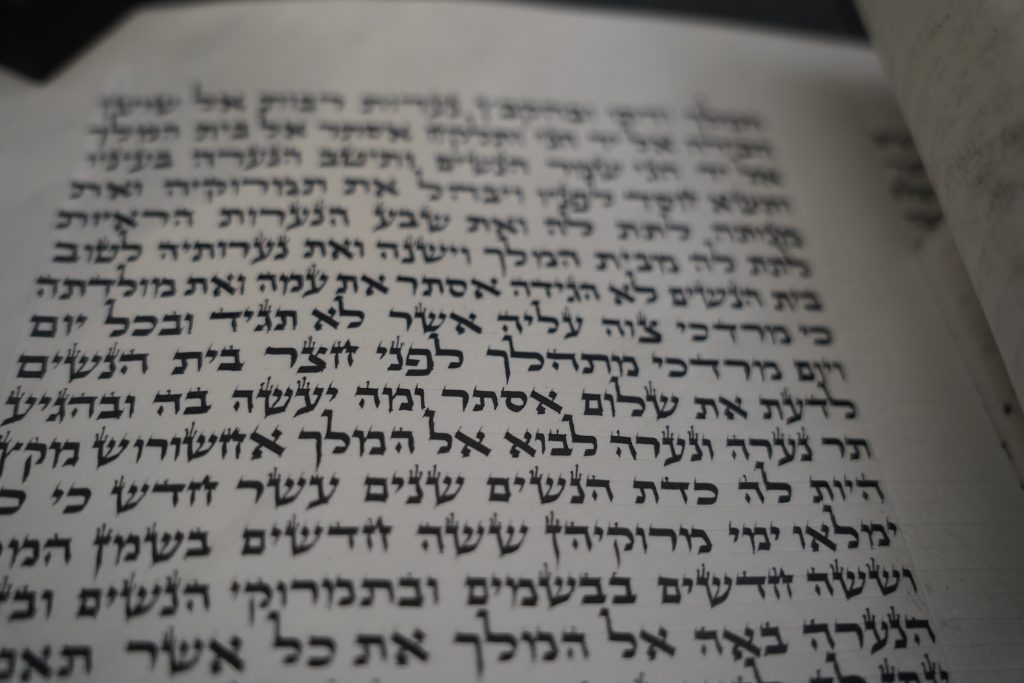 המלך ודתו ובהקבץ נערות רבות אל שושן
הבירה אל יד הגי ותלקח אסתר אל בית המלך
אל יד הגי שמר הנשים ותיטב הנערה בעיניו
ותשא חסד לפניו ויבהל את תמרוקיה ואת
מנותה לתת לה ואת שבע הנערות הראיות
לתת לה מבית המלך וישנה ואת נערותיה לטוב
בית הנשים לא הגידה אסתר את עמה ואת מולדתה
כי מרדכי צוה עליה אשר לא תגיד ובכל יום
ויום מרדכי מתהלך לפני חצר בית הנשים
לדעת את שלום אסתר ומה יעשה בה ובהגיע
תר נערה ונערה לבוא אל המלך אחשורוש מקץ
היות לה כדת הנשים שנים עשר חדש כי
ימלאו ימי מרוקיהן ששה חדשים בשמן
וששה חדשים בבשמים ובתמרוקי הנשים
הנערה באה אל המלך את כל אשר